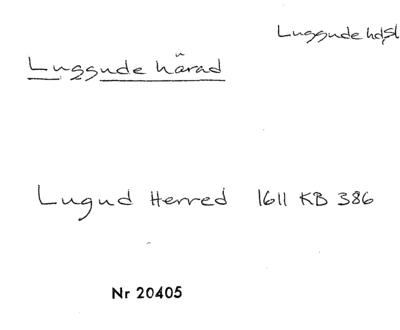 Luggude hdsl
Luggude härad
Lugud Herred 1611 KB 386
Nr 20405